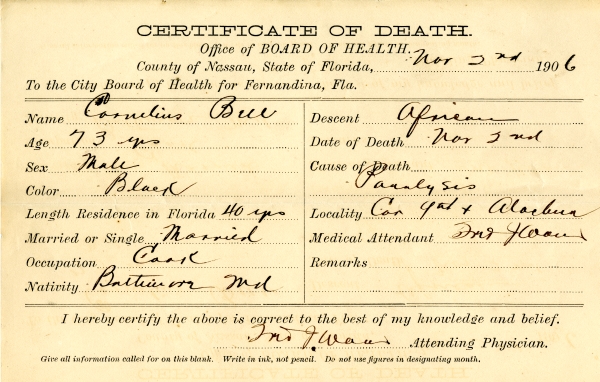 CERTIFICATE OF DEATH.
Office of BOARD OF HEALTH.
County of Nassau, State of Florida, Nov 2nd 1906
To the City Board of Health for Fernandina, Fla.
Name Cornelius Bell
Age 73 yrs
Sex Male
Color Black
Length Residence in Florida 40 yrs
Married or Single Married
Occupation Cook
Nativity Baltimore Md
Descent African
Date of Death Nov 2nd
Cause of Death
Paralysis
Locality Cor &
Medical Attendant Fred J
Remarks
I hereby certify the above is correct to the best of my knowledge and belief.
Fred J Attending Physician.
Give all information called for on this blank. Write in ink, not pencil. Do not use figures in designating month.